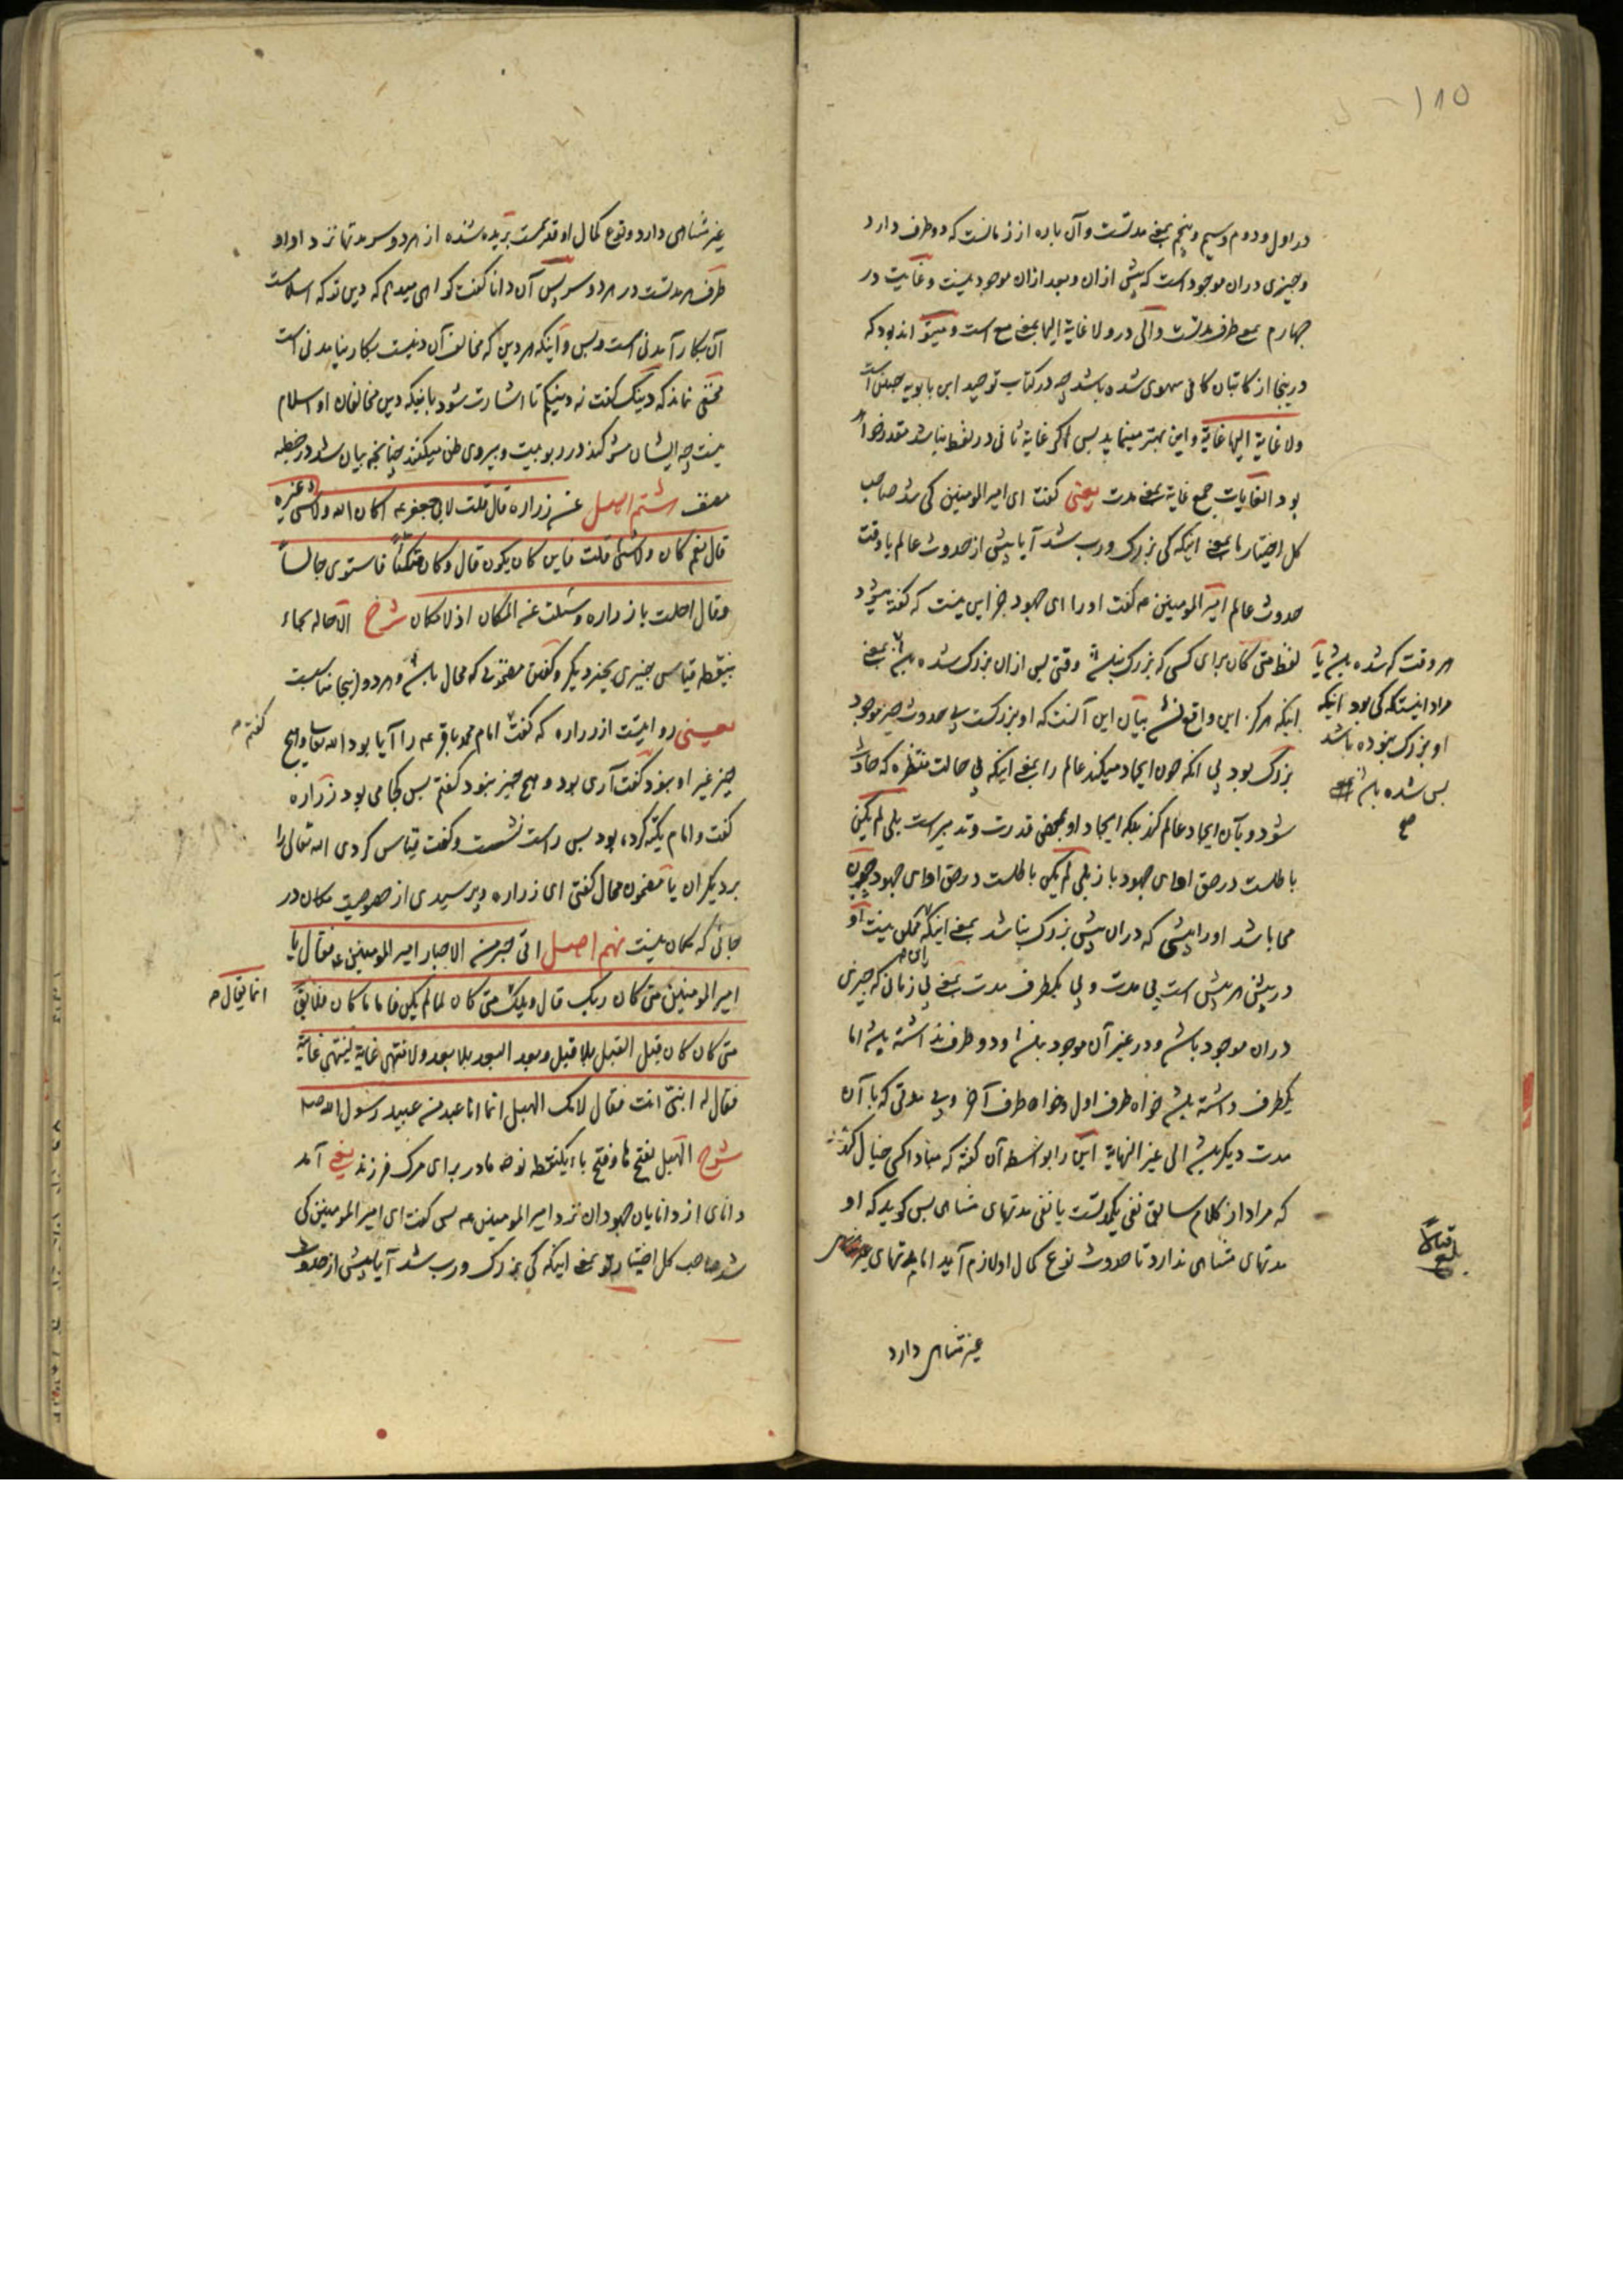 ۱۸۵
در اول و دوم و سیم و پنجم بمعنی مدتست و آن پاره از زمانست که دو طرف دارد
و چیزی دران موجود است که پیش ازان و بعد ازان موجود نیست و غایت در
چهارم بمعنی طرف مدتست و الی در ولا غایة الیها بمعنی مع است و میتواند بود که
درینجا از کاتبان کافی سهوی شده باشد چه در کتاب توحید ابن بابویه چنین است
ولا غایة الیها غایة و این بهتر مینماید پس اگر غایة ثانی در لفظ نباشد مقدر خواهد
بود الغایات جمع غایة بمعنی مدت یعنی گفت ای امیر المومنین کی شد صاحب
کل اختیار ما بمعنی اینکه کی بزرگ و رب شد آیا پیش از حدوث عالم یا وقت
حدوث عالم امیر المومنین ع گفت اورا ای جهود جز این نیست که گفته میشود
لفظ متی کان برای کسی که بزرگ نباشد وقتی پس ازان بزرگ شده باشد بمعنی
اینکه هرگز این واقع نشد بیان این آنست که او بزرگست بی حدوث چیز موجود
بزرگ بود بی آنکه چون ایجاد میکند عالم را بمعنی اینکه بی حالت منتظره که حادث
شود و بآن ایجاد عالم کند بلکه ایجاد او بمحض قدرت و تدبیر است بلی لم یکن
باطلست در حق او ای جهود باز بلی لم یکن باطلست در حق او ای جهود چون
می باشد اورا پیشی که دران پیش بزرگ نباشد بمعنی اینکه ممکن نیست او
در پیش هر پیش است بی مدت و بی یکطرف مدت بمعنی بی زمانی که چیزی
دران موجود باشد و در غیر آن موجود نباشد و دو طرف نداشته باشد اما
یکطرف داشته باشد خواه طرف اول و خواه طرف آخر و بی مدتی که با آن
مدت دیگر باشد الی غیر النهایة این را بواسطه آن گفته که مبادا کسی خیال کند
که مراد از کلام سابق نفی یکمدتست یا نفی مدتهای متناهی پس گوید که او
مدتهای متناهی ندارد تا حدوث نوع کمال او لازم آید اما مدتهای غیر
غیر متناهی دارد
هر وقت که شده باشد یا
مراد اینستکه کی بود اینکه
او بزرگ نبوده باشد
پس شده باشد
صح
بلغ قبالا
غیر متناهی دارد و نوع کمال او قدیمست بریده شده از هر دو سر مدتها نزد او او
طرف هر مدتست در هر دو سر پس آن دانا گفت گواهی میدهم که دین تو که اسلامست
آن بکار آمدنی است و بس و اینکه هر دین که مخالف آن دینست بکار نیامدنی است
مخفی نماند که دینک گفت نه دینکم تا اشارت شود باینکه دین مخالفان او اسلام
نیست چه ایشان شرکند در ربوبیت و پیروی ظن میکنند چنانچه بیان شد در خطبه
مصنف هشتم اصل عن زرارة قال قلت لابی جعفر ع اکان الله ولا شیء غیره
قال نعم کان ولا شیء قلت فاین کان یکون قال وکان متکئاً فاستوی جالساً
وقال احلت یا زراره وسئلت عن المکان اذ لا مکان شرح الاحاله بحاء
بینقطه قیاس چیزی بچیز دیگر و گفتن مضمونی که محال باشد و هر دو اینجا مناسبست
یعنی روایتست از زراره که گفت امام محمد باقر ع را آیا بود الله تعالی و هیچ
گفتم ص
چیز غیر او نبود گفت آری بود و هیچ چیز نبود گفتم پس کجا می بود زراره
گفت و امام تکیه کرده بود پس راست نشست و گفت قیاس کردی الله تعالی را
بر دیگران یا مضمون محال گفتی ای زراره و پرسیدی از خصوصیت مکان در
جائی که مکان نیست نهم اصل اتی حبر من الاحبار امیر المومنین ع فقال یا
امیر المومنین متی کان ربک قال ویلک متی کان لما لم یکن فاما ما کان فلا یقال
انما یقال ص
متی کان کان قبل القبل بلا قبل وبعد البعد بلا بعد ولا منتهی غایة لینتهی غایته
فقال له انبیّ انت فقال لامک الهبل انما انا عبد من عبید رسول الله ص
شرح الهبل بفتح ها و فتح باء یکنقطه نوحه مادر برای مرک فرزند یعنی آمد
دانای از دانایان جهودان نزد امیر المومنین ع پس گفت ای امیر المومنین کی
شد صاحب کل اختیار تو بمعنی اینکه کی بزرگ و رب شد آیا پیش از حدوث